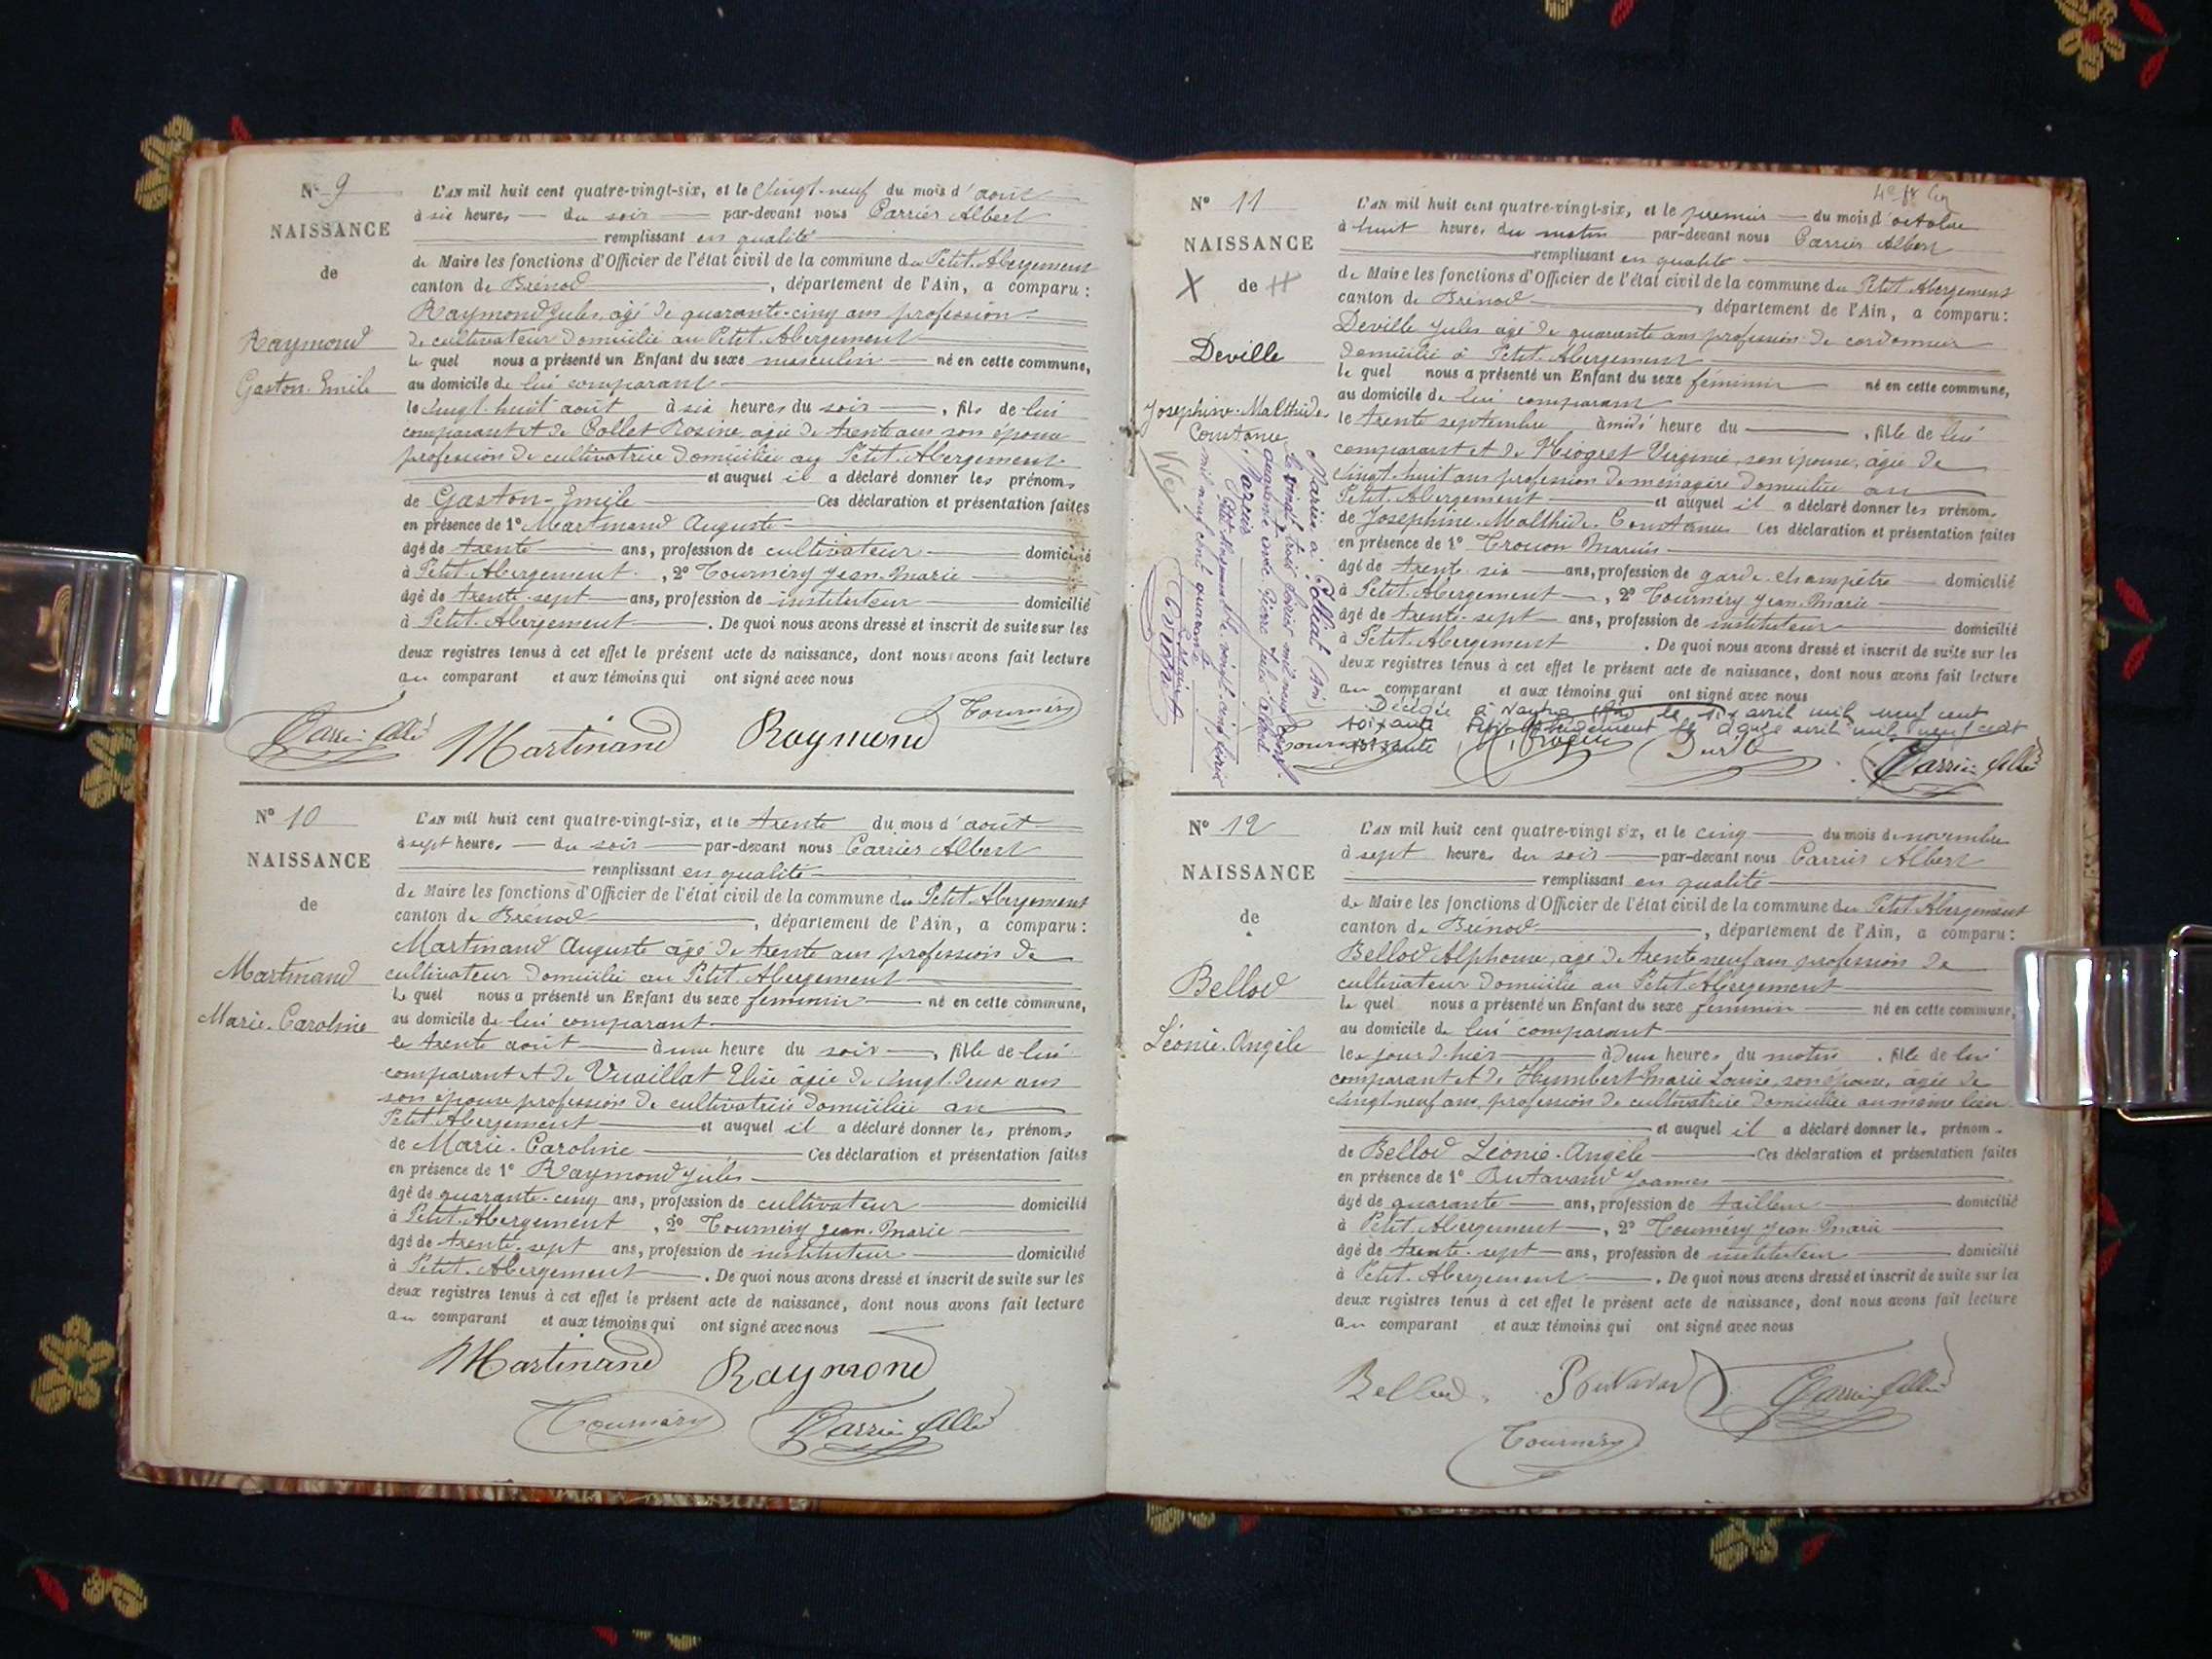 N° 9
NAISSANCE
de
Raymond
Gaston-Emile
L'AN mil huit cent quatre-vingt-six, et le vingt-neuf du mois d'août
à six heures du soir par-devant nous Carrier Albert
remplissant en qualité
de Maire les fonctions d'Officier de l'état civil de la commune du Petit-Abergement
canton de Brénod, département de l'Ain, a comparu :
Raymond Jules, âgé de quarante-cinq ans profession
de cultivateur domicilié au Petit-Abergement
le quel nous a présenté un Enfant du sexe masculin né en cette commune,
au domicile de lui comparant
le vingt-huit août à six heures du soir, fils de lui
comparant et de Collet Rosine, âgée de trente ans son épouse
profession de cultivatrice domiciliée au Petit-Abergement
et auquel il a déclaré donner les prénoms
de Gaston-Emile Ces déclaration et présentation faites
en présence de 1° Martinand Auguste
âgé de trente ans, profession de cultivateur domicilié
à Petit-Abergement, 2° Tournéry Jean-Marie
âgé de trente-sept ans, profession de instituteur domicilié
à Petit-Abergement. De quoi nous avons dressé et inscrit de suite sur les
deux registres tenus à cet effet le présent acte de naissance, dont nous avons fait lecture
au comparant et aux témoins qui ont signé avec nous
Tournéry
Carrier Albert Martinand Raymond
N° 10
NAISSANCE
de
Martinand
Marie-Caroline
L'AN mil huit cent quatre-vingt-six, et le trente du mois d'août
à sept heures du soir par-devant nous Carrier Albert
remplissant en qualité
de Maire les fonctions d'Officier de l'état civil de la commune du Petit-Abergement
canton de Brénod, département de l'Ain, a comparu :
Martinand Auguste âgé de trente ans profession de
cultivateur domicilié au Petit-Abergement
le quel nous a présenté un Enfant du sexe féminin né en cette commune,
au domicile de lui comparant
le trente août à une heure du soir, fille de lui
comparant et de Vuaillat Elise âgée de vingt-deux ans
son épouse profession de cultivatrice domiciliée au
Petit-Abergement et auquel il a déclaré donner les prénoms
de Marie-Caroline Ces déclaration et présentation faites
en présence de 1° Raymond Jules
âgé de quarante-cinq ans, profession de cultivateur domicilié
à Petit-Abergement, 2° Tournéry Jean-Marie
âgé de trente-sept ans, profession de instituteur domicilié
à Petit-Abergement. De quoi nous avons dressé et inscrit de suite sur les
deux registres tenus à cet effet le présent acte de naissance, dont nous avons fait lecture
au comparant et aux témoins qui ont signé avec nous
Martinand Raymond
Tournéry Carrier Albert
N° 11
NAISSANCE
X de
Deville
Joséphine-Malthide
Constance
Mariée à
le vingt trois février mil neuf cent
quarante avec Pierre Jules
Petit Abergement le vingt-cinq février
mil neuf cent quarante
L'AN mil huit cent quatre-vingt-six, et le premier du mois d'octobre
à huit heures du matin par-devant nous Carrier Albert
remplissant en qualité
de Maire les fonctions d'Officier de l'état civil de la commune du Petit-Abergement
canton de Brénod, département de l'Ain, a comparu :
Deville Jules âgé de quarante ans profession de cordonnier
domicilié à Petit-Abergement
le quel nous a présenté un Enfant du sexe féminin né en cette commune,
au domicile de lui comparant
le trente septembre à midi heure du, fille de lui
comparant et de Virginie, son épouse, âgée de
vingt-huit ans profession de ménagère domiciliée au
Petit-Abergement et auquel il a déclaré donner les prénoms
de Joséphine-Malthide-Constance Ces déclaration et présentation faites
en présence de 1° Marius
âgé de trente six ans, profession de garde-champêtre domicilié
à Petit-Abergement, 2° Tournéry Jean-Marie
âgé de trente-sept ans, profession de instituteur domicilié
à Petit-Abergement. De quoi nous avons dressé et inscrit de suite sur les
deux registres tenus à cet effet le présent acte de naissance, dont nous avons fait lecture
au comparant et aux témoins qui ont signé avec nous
Décédée à Nantua (Ain) le dix avril mil neuf cent
soixante Petit Abergement le avril mil neuf cent
soixante
Carrier Albert
N° 12
NAISSANCE
de
Bellod
Léonie-Angèle
L'AN mil huit cent quatre-vingt six, et le cinq du mois de novembre
à sept heures du soir par-devant nous Carrier Albert
remplissant en qualité
de Maire les fonctions d'Officier de l'état civil de la commune du Petit-Abergement
canton de Brénod, département de l'Ain, a comparu :
Bellod Alphonse, âgé de trente neuf ans profession de
cultivateur domicilié au Petit-Abergement
le quel nous a présenté un Enfant du sexe féminin né en cette commune,
au domicile de lui comparant
le jour d'hier à deux heures du matin, fille de lui
comparant et de Humbert Marie Louise, son épouse, âgée de
vingt-neuf ans, profession de cultivatrice domiciliée au même lieu
et auquel il a déclaré donner les prénom
de Bellod Léonie-Angèle Ces déclaration et présentation faites
en présence de 1° Butavand Joannès
âgé de quarante ans, profession de tailleur domicilié
à Petit-Abergement, 2° Tournéry Jean-Marie
âgé de trente-sept ans, profession de instituteur domicilié
à Petit-Abergement. De quoi nous avons dressé et inscrit de suite sur les
deux registres tenus à cet effet le présent acte de naissance, dont nous avons fait lecture
au comparant et aux témoins qui ont signé avec nous
Bellod Carrier Albert
Tournéry